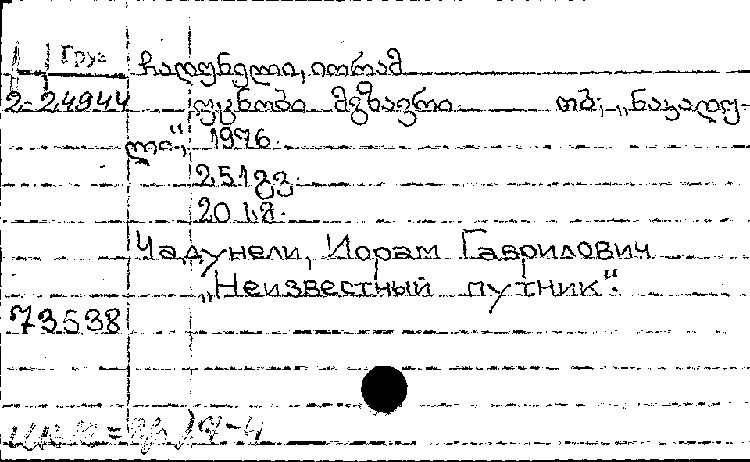 Груз
ჩადუნელი, იორამ
2-24944 უცნობი მგზავრი თბ., „ნაკადუ-
ლი“, 1976.
251გვ.
20 სმ.
Чадунели, Иорам Гаврилович
„Неизвестный путник“.
73538